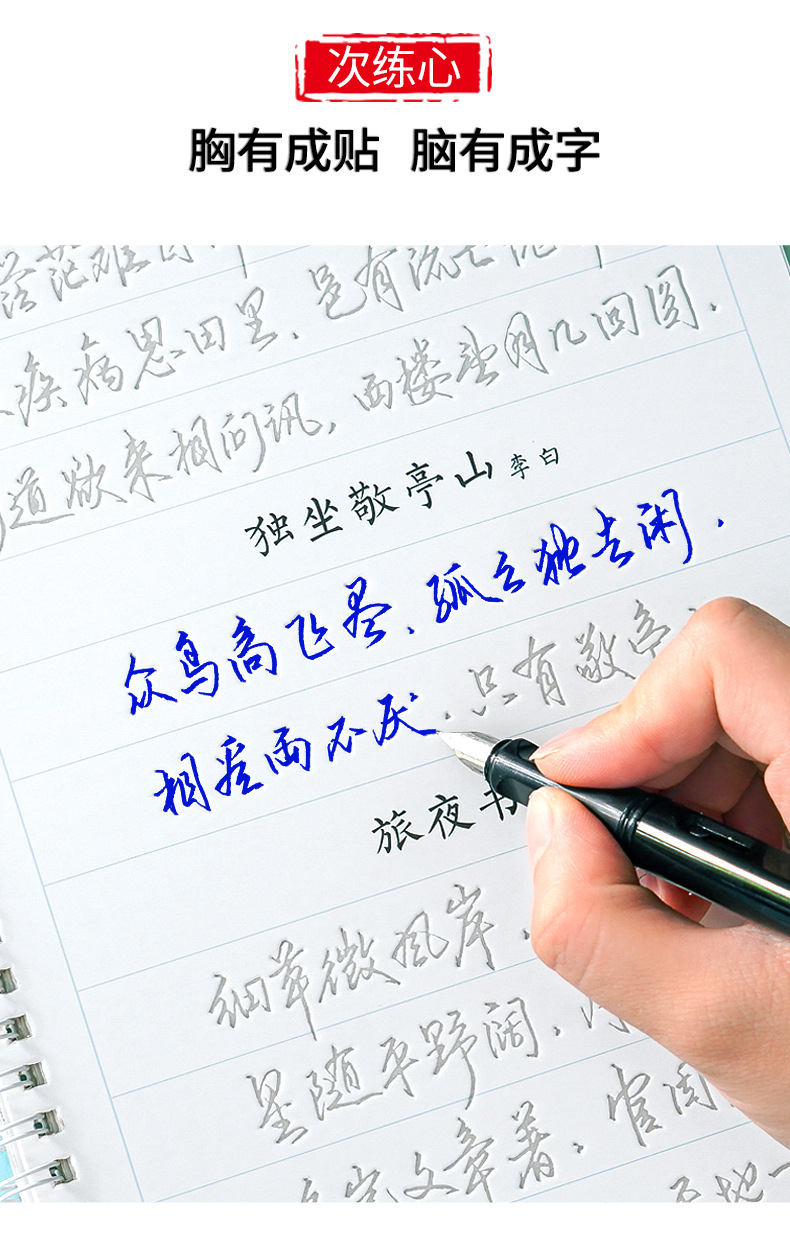 次练心
胸有成贴 脑有成字
茫难自
疾病思田里,邑有流亡
道欲来相问讯,西楼望月几回圆.
独坐敬亭山 李白
众鸟高飞尽,孤云独去闲.
相看两不厌.只有敬亭
旅夜书
细草微风岸.
星随平野阔.
文章著.官因
地一